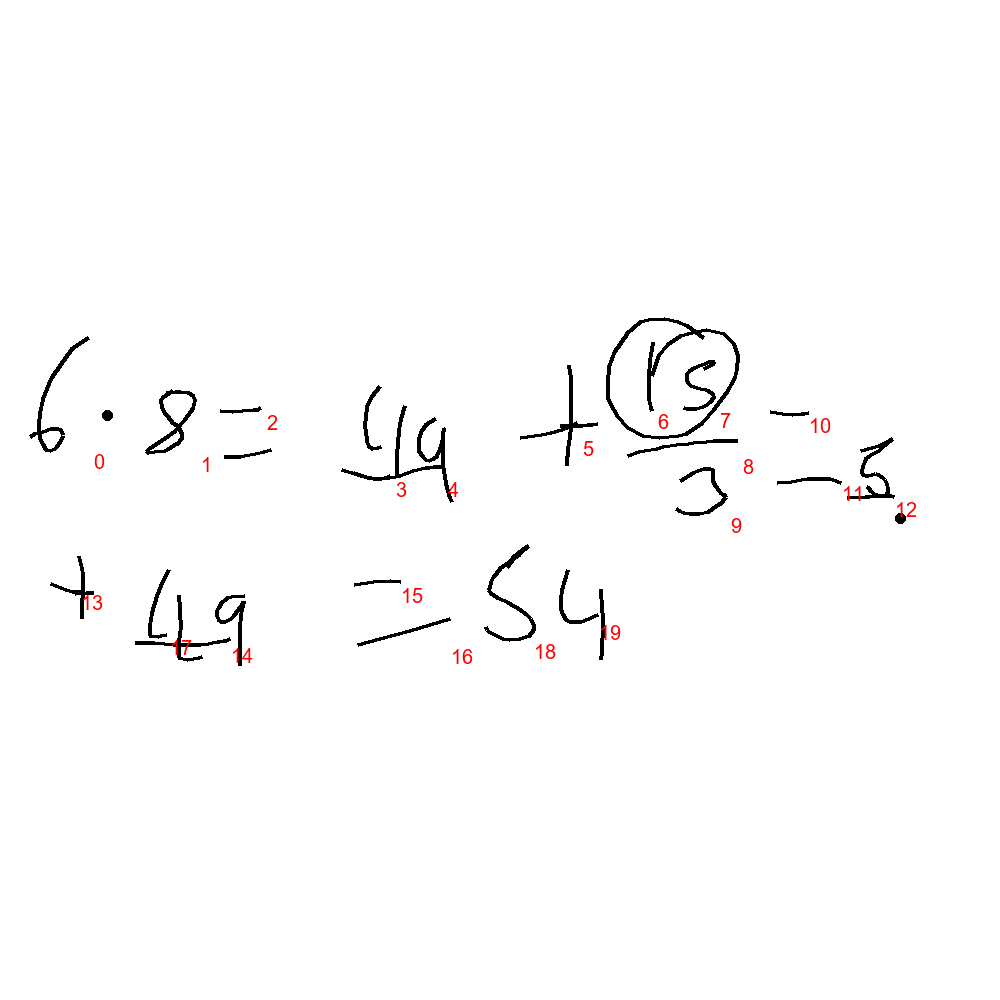 6 · 8 = 49 + 15/3 = 5.
+ 49 = 54
0 1 2 3 4 5 6 7 8 9 10 11 12
13 17 14 15 16 18 19